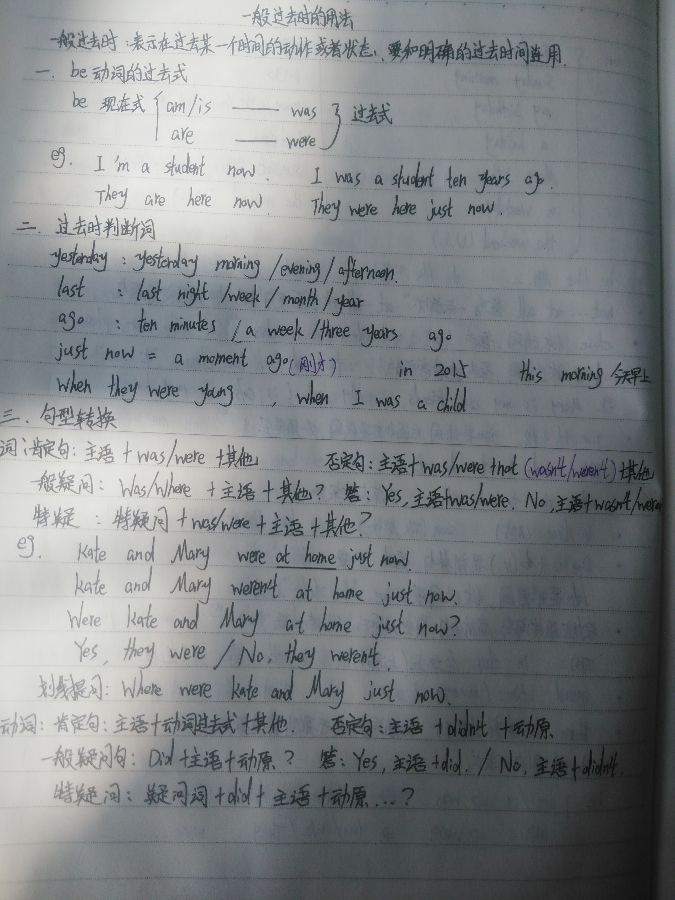 一般过去时的用法
一般过去时:表示在过去某一个时间的动作或者状态、要和明确的过去时间连用.
一. be 动词的过去式
be 现在式 { am/is —— was } 过去式
are —— were
eg. I'm a student now. I was a student ten years ago.
They are here now. They were here just now.
二. 过去时判断词
yesterday : yesterday morning /evening / afternoon.
last : last night /week / month / year
ago : ten minutes / a week /three years ago
just now = a moment ago (刚才) in 2015 this morning 今天早上
when they were young , when I was a child
三. 句型转换
词:肯定句:主语+was/were+其他 否定句:主语+was/were+not (wasn't/weren't)+其他
一般疑问:Was/Where +主语+其他? 答:Yes,主语+was/were. No,主语+wasn't/weren
特疑 : 特疑问+was/were+主语+其他?
eg. Kate and Mary were at home just now.
Kate and Mary weren't at home just now.
Were Kate and Mary at home just now?
Yes, they were / No, they weren't.
划线提问: Where were Kate and Mary just now.
动词:肯定句:主语+动词过去式+其他. 否定句:主语 +didn't +动原
一般疑问句:Did+主语+动原? 答:Yes,主语+did. / No,主语+didn't.
特疑问:疑问词+did+主语+动原...?